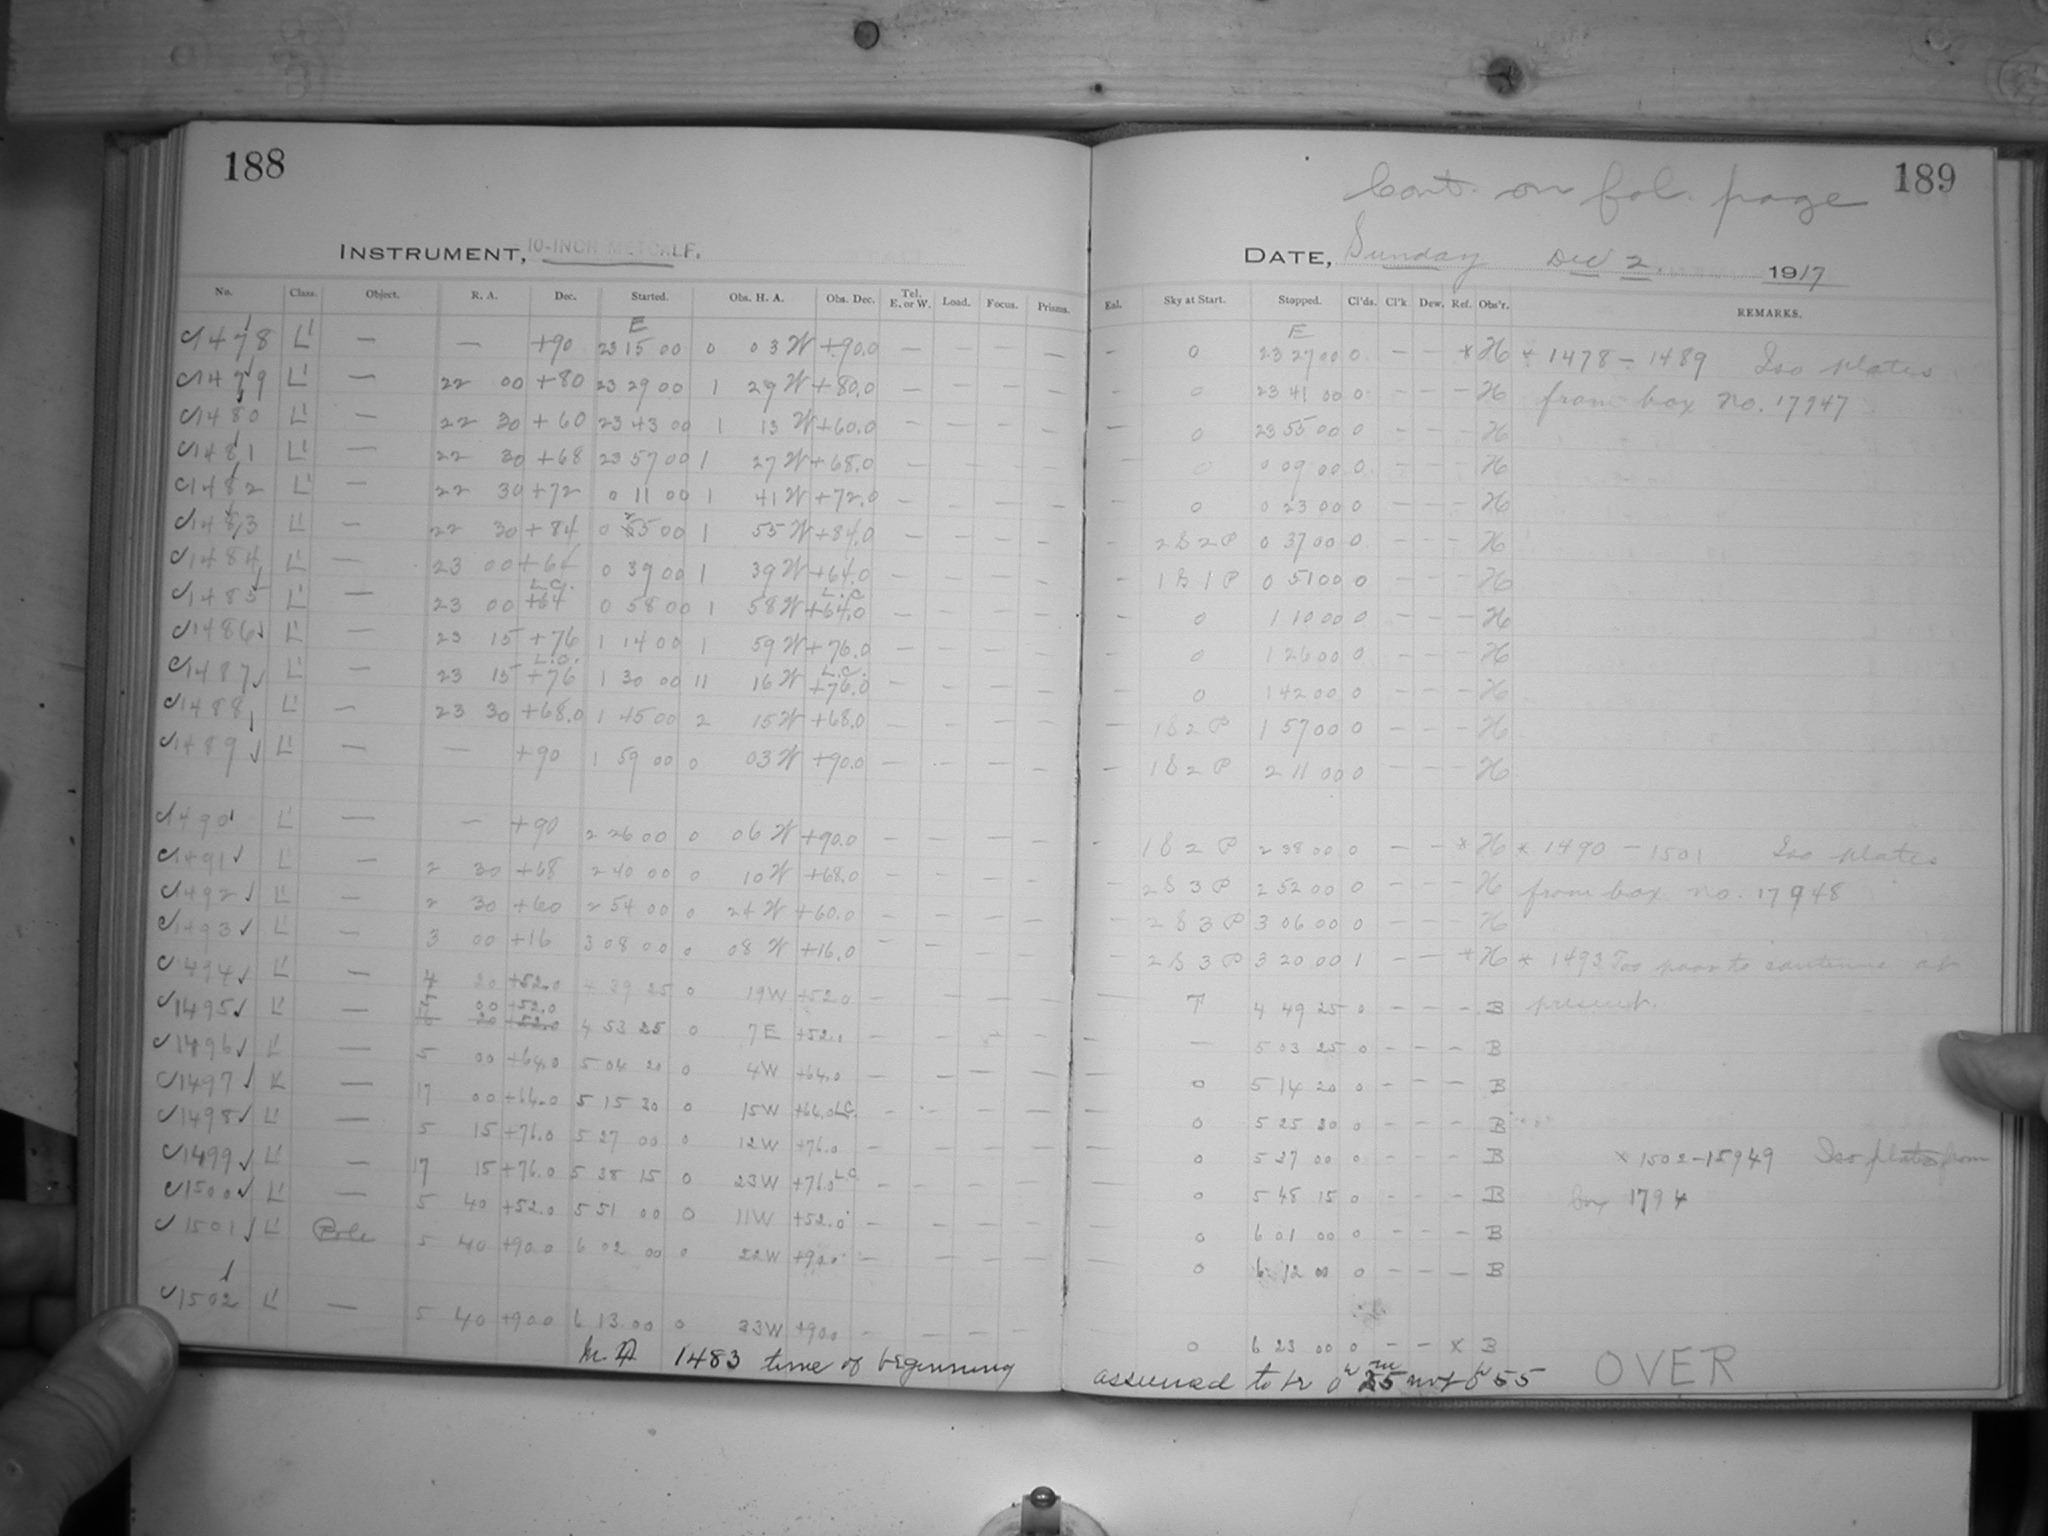 188
189
Cont. on fol. page
INSTRUMENT, 10-INCH METCALF.
DATE, Sunday Dec 2, 1917
No. Class. Object. R. A. Dec. Started. Obs. H. A. Obs. Dec. Tel. E. or W. Load. Focus. Prisms. Eal. Sky at Start. Stopped. Cl'ds. Cl'k Dew. Ref. Obs'r. REMARKS.
E E
1478 L' — — +90 23 15 00 0 03 W +90.0 — — — — — 0 23 27 00 0 — — * H * 1478 - 1489 Iso plates
1479 L' — 22 00 +80 23 29 00 1 29 W +80.0 — — — — — 0 23 41 00 0 — — — H from box no. 17947
1480 L' — 22 30 +60 23 43 00 1 13 W +60.0 — — — — — 0 23 55 00 0 — — — H
1481 L' — 22 30 +68 23 57 00 1 27 W +68.0 — — — — — 0 0 09 00 0 — — — H
1482 L' — 22 30 +72 0 11 00 1 41 W +72.0 — — — — — 0 0 23 00 0 — — — H
1483 L' — 22 30 +84 0 25 00 1 55 W +84.0 — — — — — 2S2P 0 37 00 0 — — — H
1484 L' — 23 00 +64 0 39 00 1 39 W +64.0 — — — — — 1S1P 0 51 00 0 — — — H
L.C. L.C.
1485 L' — 23 00 +64 0 58 00 1 58 W +64.0 — — — — — 0 1 10 00 0 — — — H
1486 L' — 23 15 +76 1 14 00 1 59 W +76.0 — — — — — 0 1 26 00 0 — — — H
L.C. L.C.
1487 L' — 23 15 +76 1 30 00 11 16 W +76.0 — — — — — 0 1 42 00 0 — — — H
1488 L' — 23 30 +68.0 1 45 00 2 15 W +68.0 — — — — — 1S2P 1 57 00 0 — — — H
1489 L' — — +90 1 59 00 0 03 W +90.0 — — — — — 1S2P 2 11 00 0 — — — H
1490 L' — — +90 2 26 00 0 06 W +90.0 — — — — — 1S2P 2 38 00 0 — — * H * 1490 - 1501 Iso plates
1491 L' — 2 30 +68 2 40 00 0 10 W +68.0 — — — — — 2S3P 2 52 00 0 — — — H from box no. 17948
1492 L' — 2 30 +60 2 54 00 0 24 W +60.0 — — — — — 2S3P 3 06 00 0 — — — H
1493 L' — 3 00 +16 3 08 00 0 08 W +16.0 — — — — — 2S3P 3 20 00 1 — — * H * 1493 Too poor to continue at
1494 L' — 4 20 +52.0 4 39 25 0 19W +52.0 — — — — — T 4 49 25 0 — — — B present.
1495 L' — 5 00 +52.0 4 53 25 0 7E +52.0 — — — — — — 5 03 25 0 — — — B
1496 L' — 5 00 +64.0 5 04 20 0 4W +64.0 — — — — — 0 5 14 20 0 — — — B
1497 L' — 17 00 +64.0 5 15 30 0 15W +64.0 LC. — — — — — 0 5 25 30 0 — — — B
1498 L' — 5 15 +76.0 5 27 00 0 12W +76.0 — — — — — 0 5 37 00 0 — — — B * 1502-15949 Iso plates from
1499 L' — 17 15 +76.0 5 38 15 0 23W +76.0 LC — — — — — 0 5 48 15 0 — — — B box 1794
1500 L' — 5 40 +52.0 5 51 00 0 11W +52.0 — — — — — 0 6 01 00 0 — — — B
1501 L' Pole 5 40 +90.0 6 02 00 0 22W +90.0 — — — — — 0 6 12 00 0 — — — B
1502 L' — 5 40 +90.0 6 13 00 0 33W +90.0 — — — — 0 6 23 00 0 — — * B
1483 time of beginning assumed to be 0h 25m not 0h 55
OVER